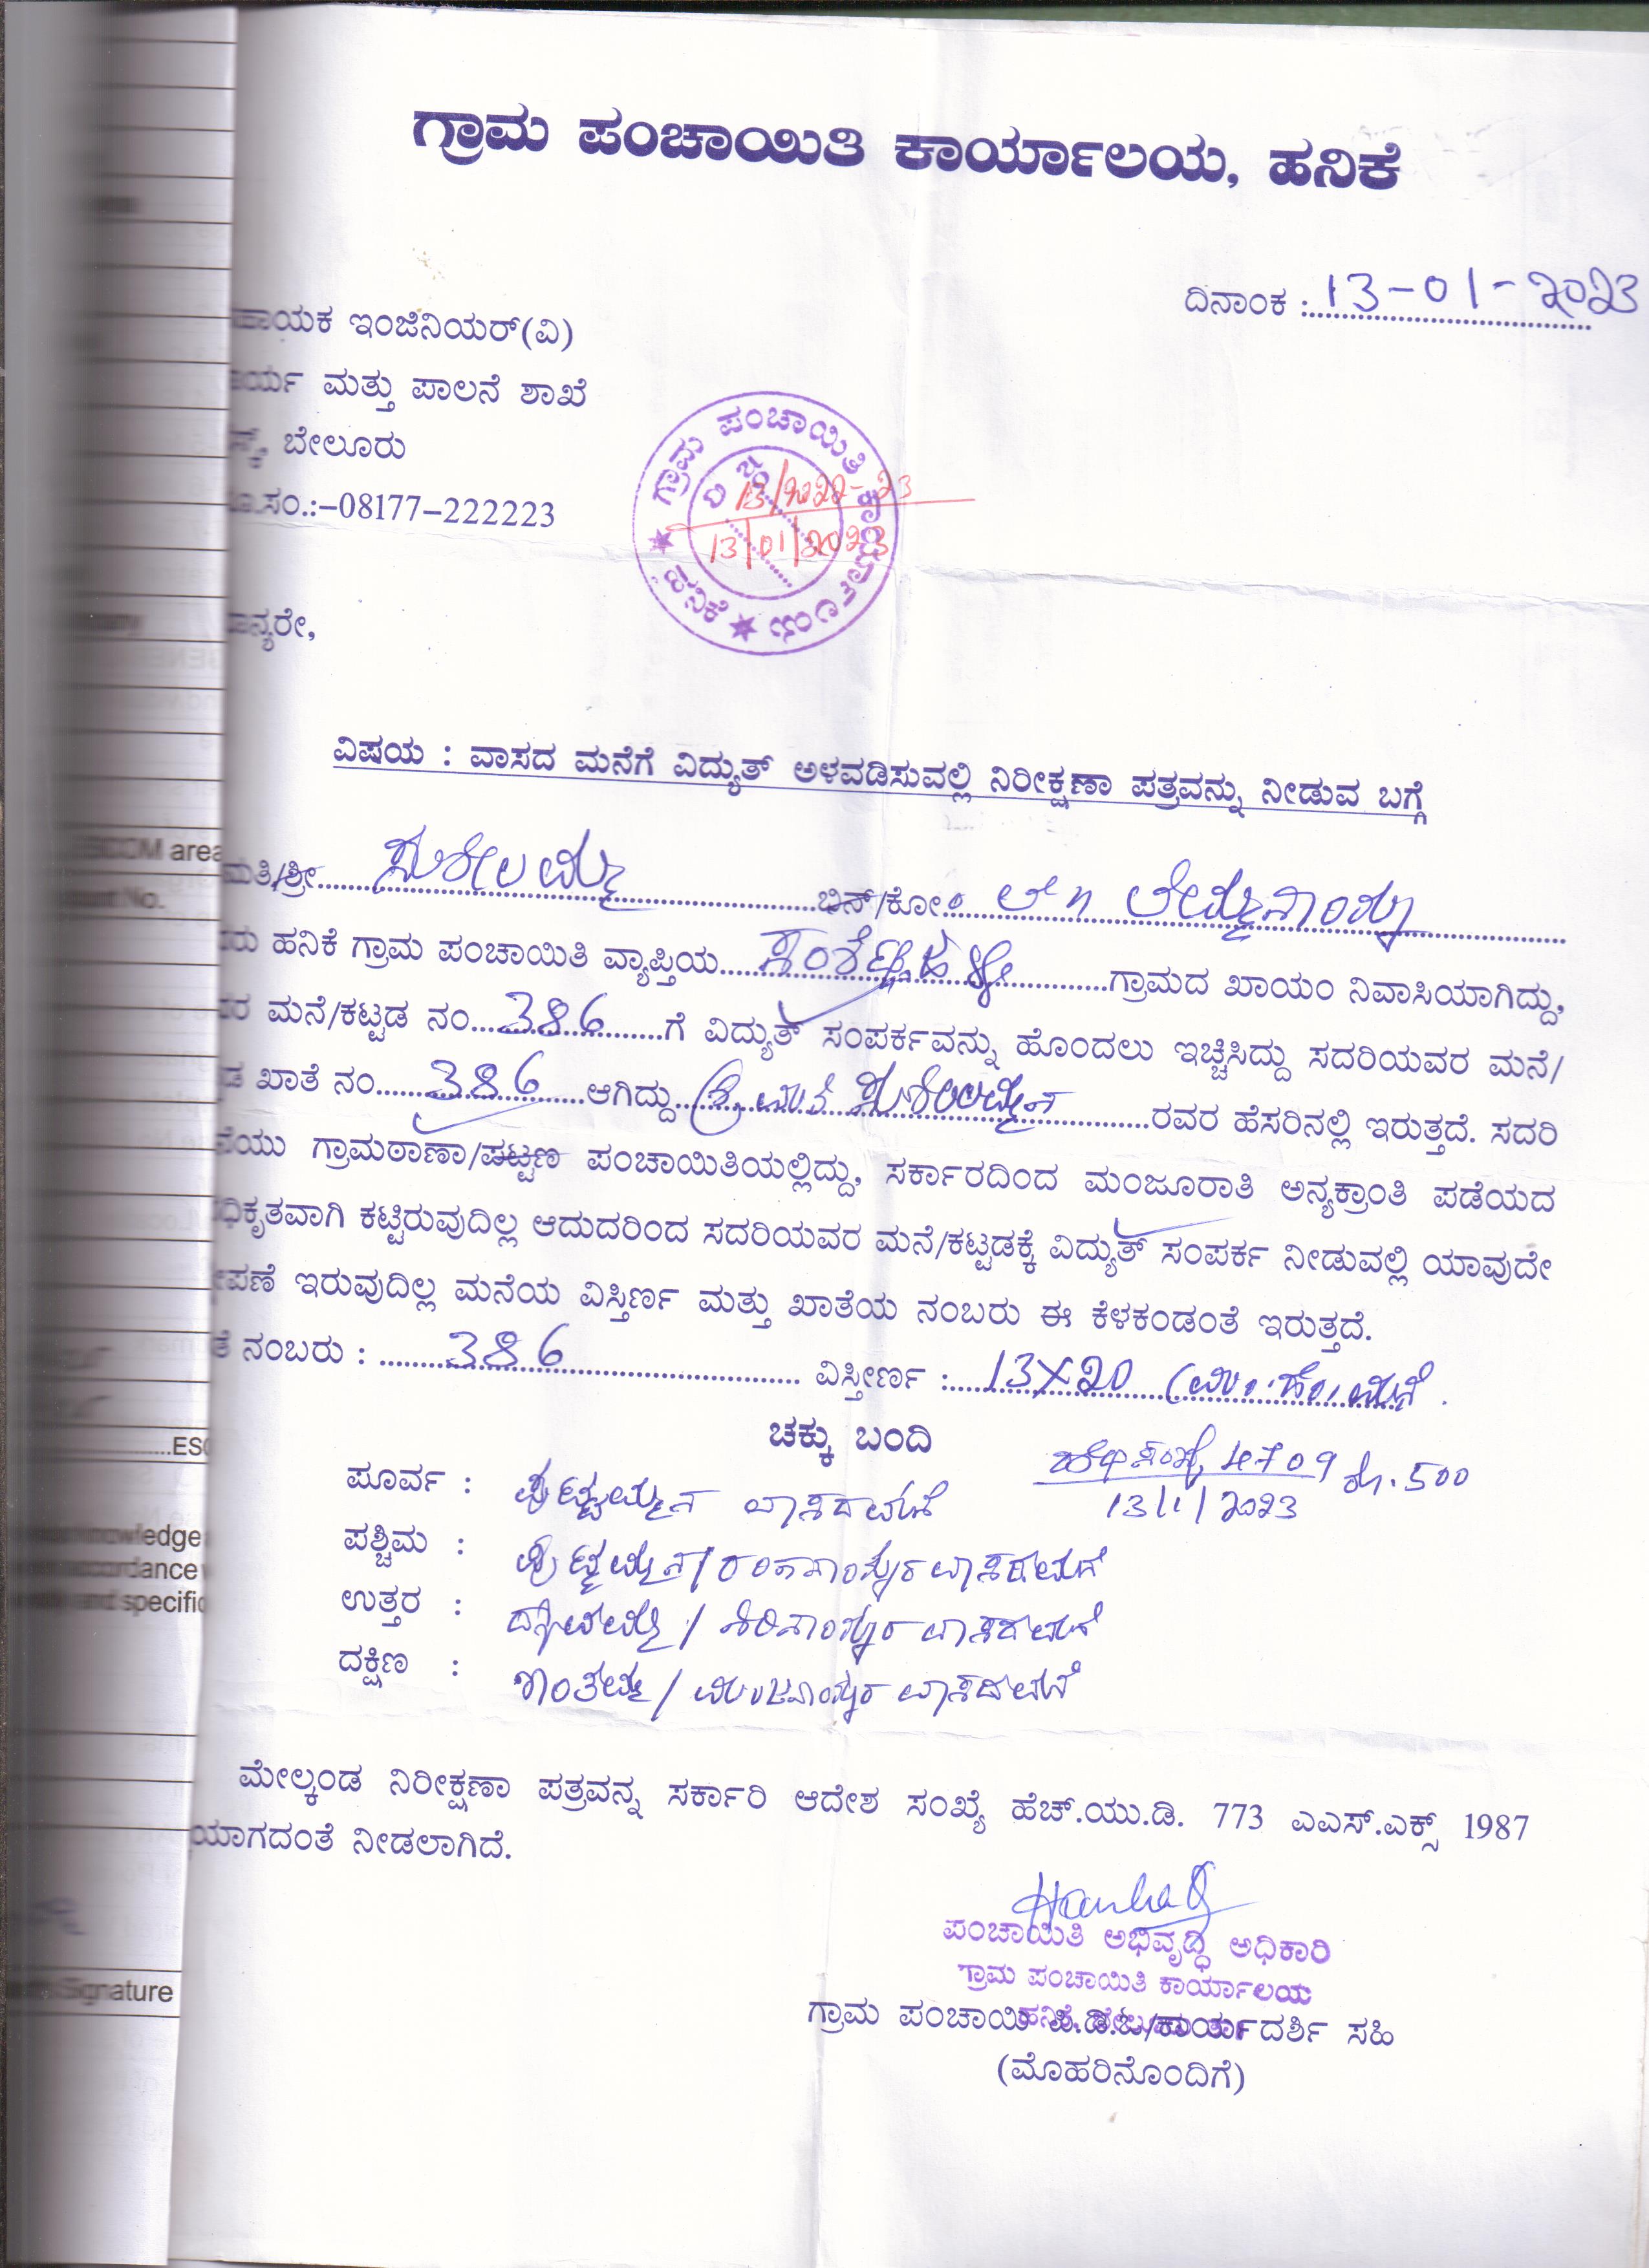 ಗ್ರಾಮ ಪಂಚಾಯಿತಿ ಕಾರ್ಯಾಲಯ, ಹನಿಕೆ
ದಿನಾಂಕ : 13-01-2023
ಹಾಯಕ ಇಂಜಿನಿಯರ್(ವಿ)
ರ್ಯ ಮತ್ತು ಪಾಲನೆ ಶಾಖೆ
ಬೇಲೂರು
ಸಂ.:-08177-222223
ಗ್ರಾಮ ಪಂಚಾಯಿತಿ ಕಾರ್ಯಾಲಯ ಹನಿಕೆ
13/2022-23
13/01/2023
ನ್ಯರೇ,
ವಿಷಯ : ವಾಸದ ಮನೆಗೆ ವಿದ್ಯುತ್ ಅಳವಡಿಸುವಲ್ಲಿ ನಿರೀಕ್ಷಣಾ ಪತ್ರವನ್ನು ನೀಡುವ ಬಗ್ಗೆ
ಮತಿ/ಶ್ರೀ ಸುಶೀಲಮ್ಮ ಬಿನ್/ಕೋಂ
ರು ಹನಿಕೆ ಗ್ರಾಮ ಪಂಚಾಯಿತಿ ವ್ಯಾಪ್ತಿಯ ಗ್ರಾಮದ ಖಾಯಂ ನಿವಾಸಿಯಾಗಿದ್ದು,
ರ ಮನೆ/ಕಟ್ಟಡ ನಂ 386 ಗೆ ವಿದ್ಯುತ್ ಸಂಪರ್ಕವನ್ನು ಹೊಂದಲು ಇಚ್ಚಿಸಿದ್ದು ಸದರಿಯವರ ಮನೆ/
ಡ ಖಾತೆ ನಂ 386 ಆಗಿದ್ದು ಶ್ರೀಮತಿ ಸುಶೀಲಮ್ಮನ ರವರ ಹೆಸರಿನಲ್ಲಿ ಇರುತ್ತದೆ. ಸದರಿ
ಯು ಗ್ರಾಮಠಾಣಾ/ಪಟ್ಟಣ ಪಂಚಾಯಿತಿಯಲ್ಲಿದ್ದು, ಸರ್ಕಾರದಿಂದ ಮಂಜೂರಾತಿ ಅನ್ಯಕ್ರಾಂತಿ ಪಡೆಯದ
ಧಿಕೃತವಾಗಿ ಕಟ್ಟಿರುವುದಿಲ್ಲ ಆದುದರಿಂದ ಸದರಿಯವರ ಮನೆ/ಕಟ್ಟಡಕ್ಕೆ ವಿದ್ಯುತ್ ಸಂಪರ್ಕ ನೀಡುವಲ್ಲಿ ಯಾವುದೇ
ಪಣೆ ಇರುವುದಿಲ್ಲ ಮನೆಯ ವಿಸ್ತಿರ್ಣ ಮತ್ತು ಖಾತೆಯ ನಂಬರು ಈ ಕೆಳಕಂಡಂತೆ ಇರುತ್ತದೆ.
ತೆ ನಂಬರು : 386 ವಿಸ್ತೀರ್ಣ : 13X20 (ಮಂ.ಹೆಂ.ಮನೆ.
ಚಕ್ಕು ಬಂದಿ
4709 ರೂ.500
13/1/2023
ಪೂರ್ವ : ಪುಟ್ಟಮ್ಮನ ವಾಸದಮನೆ
ಪಶ್ಚಿಮ : ವಾಸದಮನೆ
ಉತ್ತರ : ವಾಸದಮನೆ
ದಕ್ಷಿಣ : ಶಾಂತಮ್ಮ / ವಾಸದಮನೆ
ಮೇಲ್ಕಂಡ ನಿರೀಕ್ಷಣಾ ಪತ್ರವನ್ನ ಸರ್ಕಾರಿ ಆದೇಶ ಸಂಖ್ಯೆ ಹೆಚ್.ಯು.ಡಿ. 773 ಎಎಸ್.ಎಕ್ಸ್ 1987
ಯಾಗದಂತೆ ನೀಡಲಾಗಿದೆ.
ಪಂಚಾಯಿತಿ ಅಭಿವೃದ್ಧಿ ಅಧಿಕಾರಿ
ಗ್ರಾಮ ಪಂಚಾಯಿತಿ ಕಾರ್ಯಾಲಯ
ಗ್ರಾಮ ಪಂಚಾಯಿತಿ ಪಿ.ಡಿ.ಓ/ಕಾರ್ಯದರ್ಶಿ ಸಹಿ
(ಮೊಹರಿನೊಂದಿಗೆ)
area
No.
ESC
knowledge
cordance
and specific
Signature